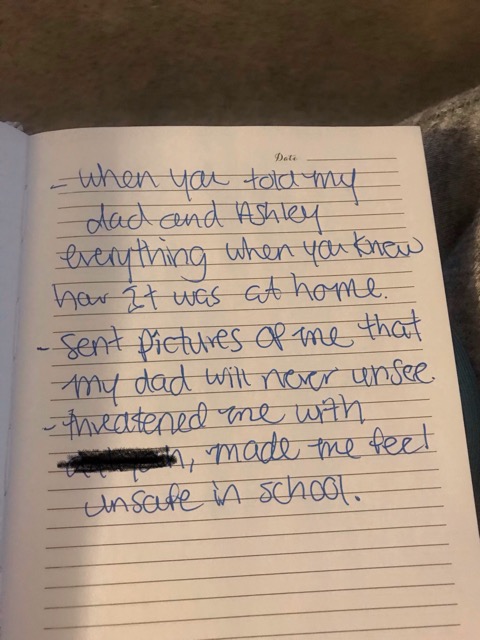 Date
- When you told my
dad and Ashley
everything when you knew
how it was at home.
- sent pictures of me that
my dad will never unsee.
- threatened me with
, made me feel
unsafe in school.